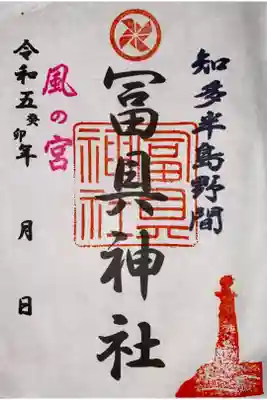 知多半島野間
冨具神社
冨具神社
風の宮
令和五癸卯年 月 日